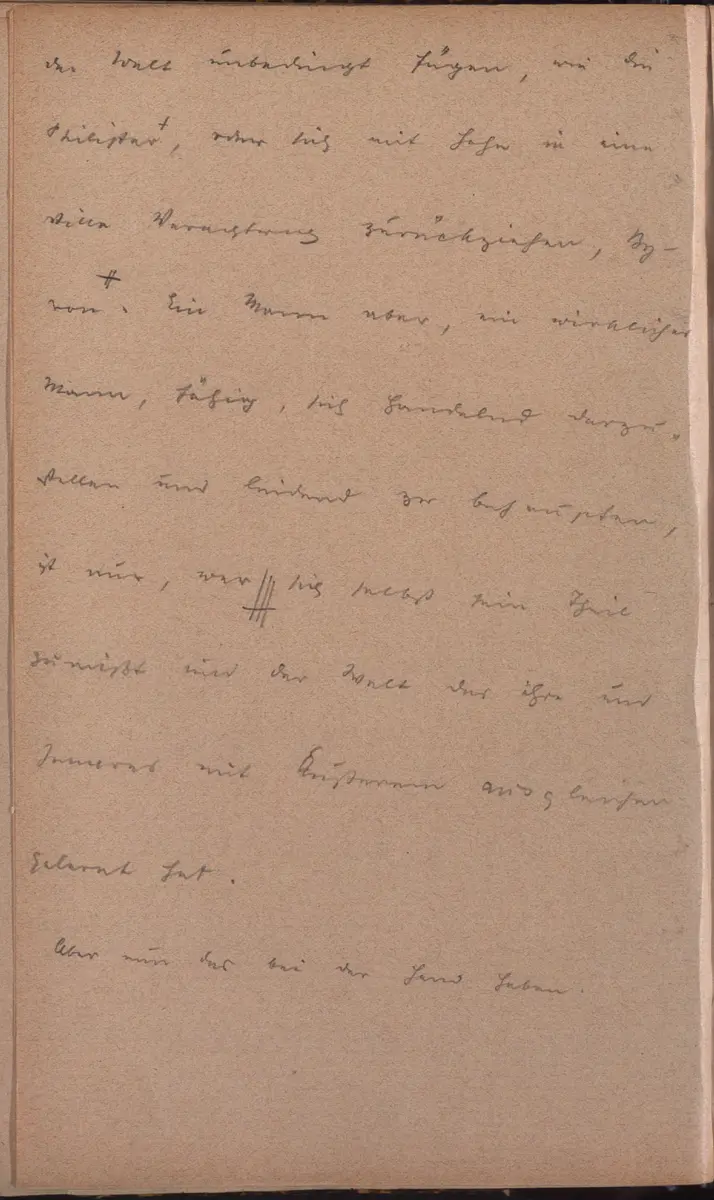 der Welt unbedingt fügen, wie die
Philister+, oder sich mit Hohn in eine
stille Verachtung zurückziehen, By-
ron. Ein Mann aber, ein wirklicher
Mann, fähig, sich handelnd darzu-
stellen und leidend zu behaupten,
ist nur, wer sich selbst sein Theil
zumißt und der Welt das ihre und
Inneres mit Äußerem ausgleichen
gelernt hat.
Aber nun das bei der Hand haben.